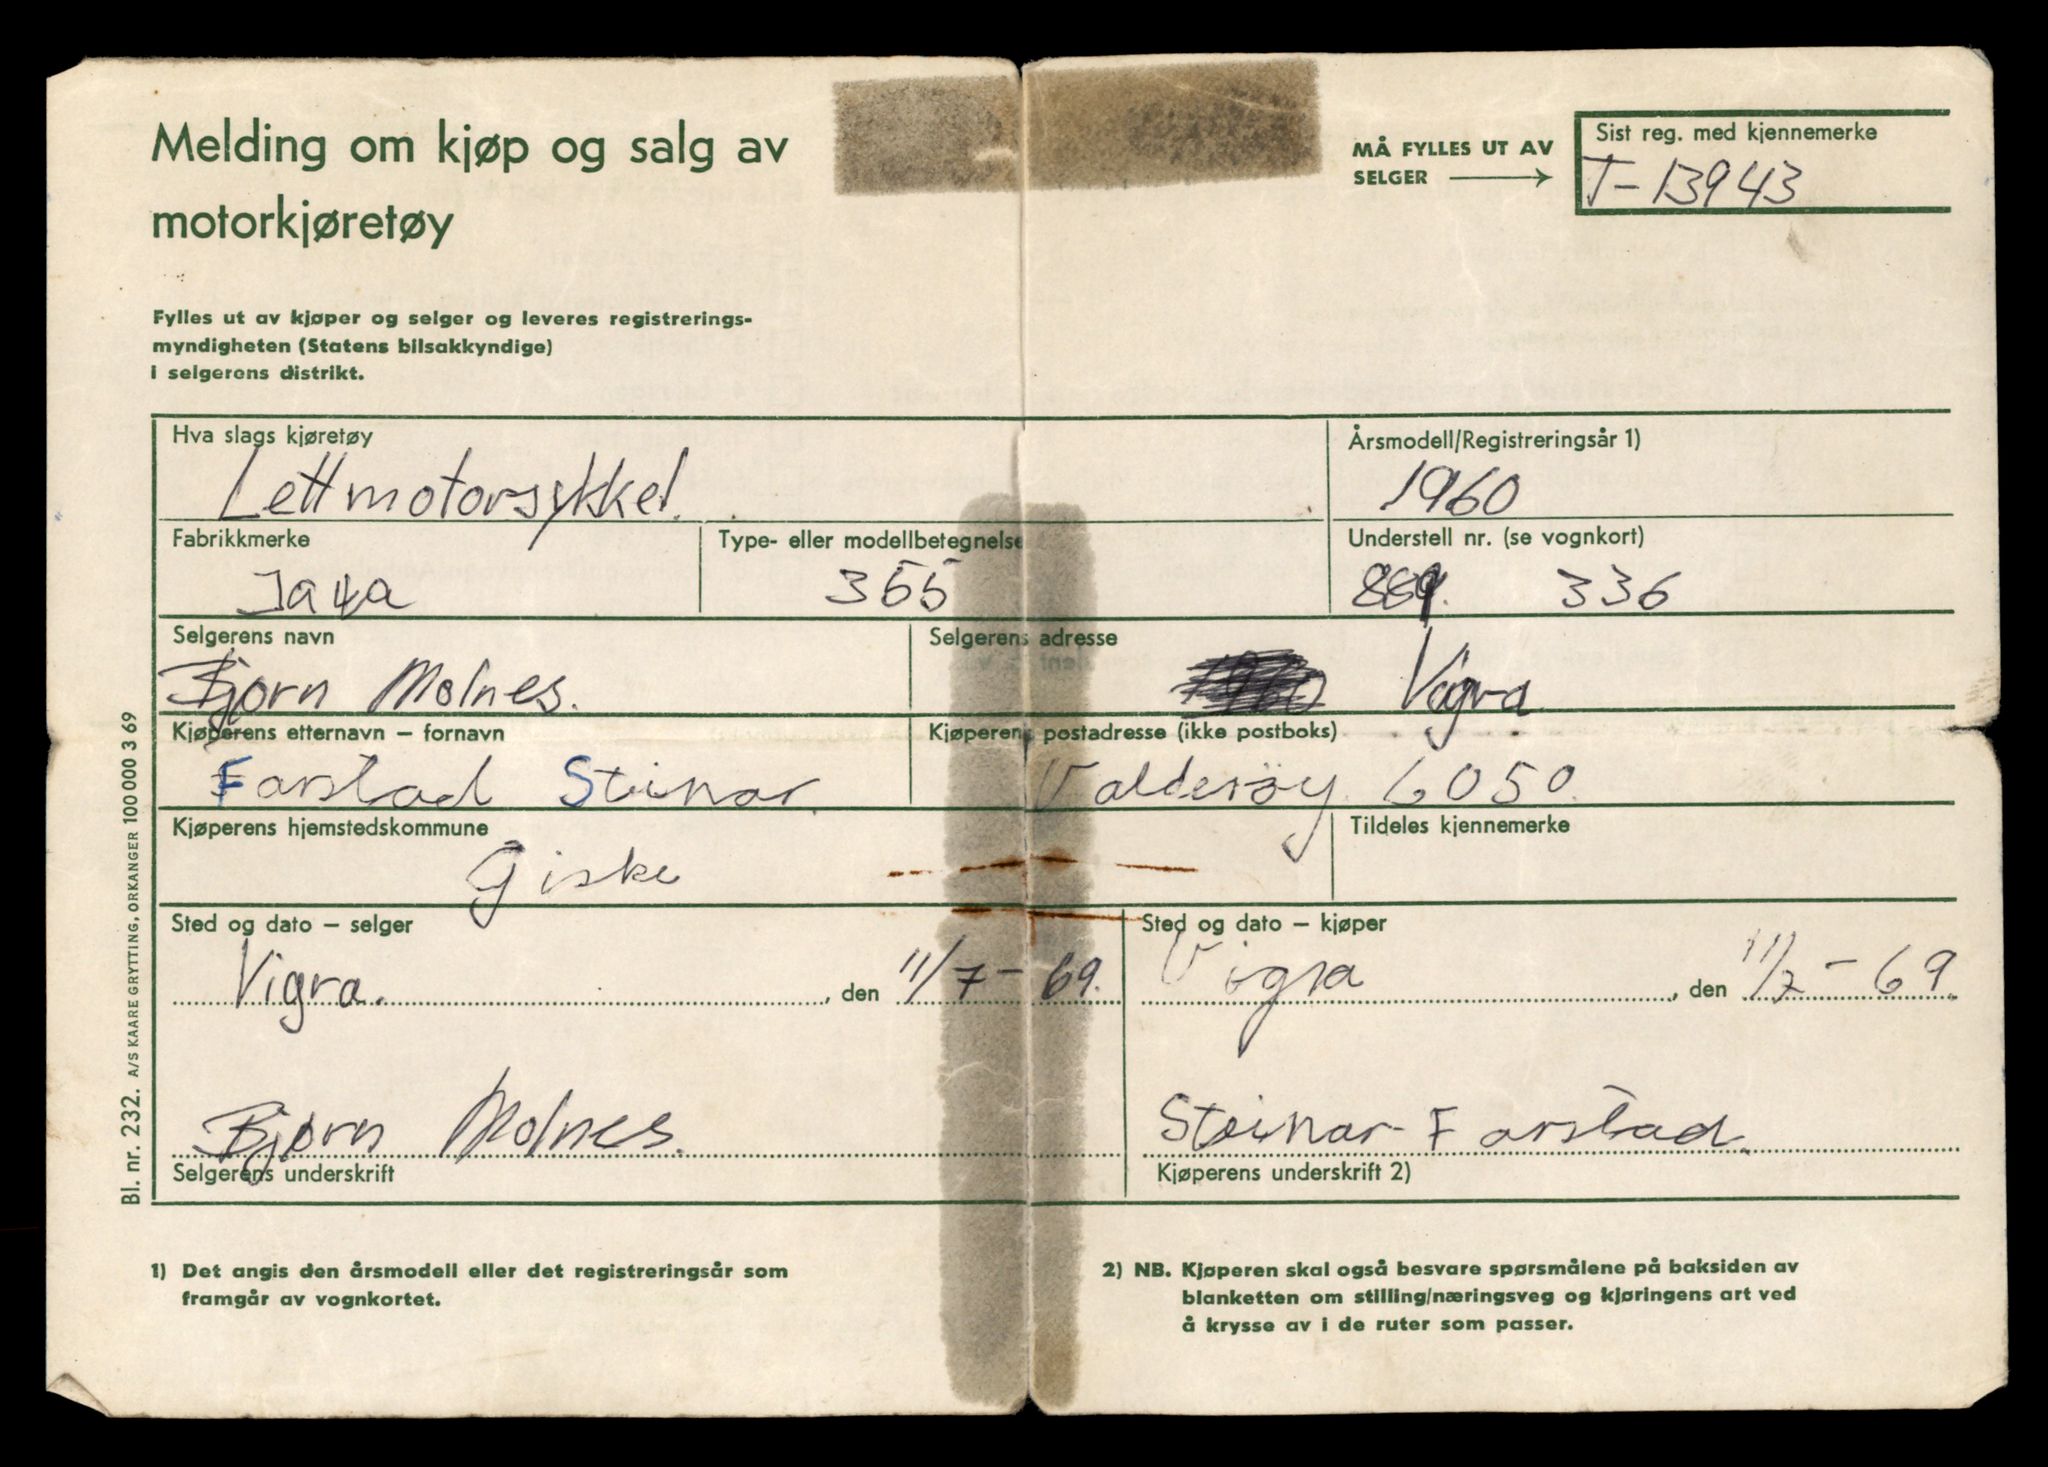 Melding om kjøp og salg av
motorkjøretøy
MÅ FYLLES UT AV
SELGER
Sist reg. med kjennemerke
T-13943
Fylles ut av kjøper og selger og leveres registrerings-
myndigheten (Statens bilsakkyndige)
i selgerens distrikt.
Hva slags kjøretøy
Lettmotorsykkel.
Årsmodell/Registreringsår 1)
1960
Fabrikkmerke
Jawa
Type- eller modellbetegnelse
355
Understell nr. (se vognkort)
336
Selgerens navn
Bjørn Molnes.
Selgerens adresse
Vigra
Kjøperens etternavn – fornavn
Farstad Steinar.
Kjøperens postadresse (ikke postboks)
Valderöy. 6050.
Kjøperens hjemstedskommune
Giske
Tildeles kjennemerke
Sted og dato – selger
Vigra. , den 11/7 - 69.
Sted og dato – kjøper
Vigra , den 11/7 - 69.
Bjørn Molnes.
Selgerens underskrift
Steinar Farstad.
Kjøperens underskrift 2)
1) Det angis den årsmodell eller det registreringsår som
framgår av vognkortet.
2) NB. Kjøperen skal også besvare spørsmålene på baksiden av
blanketten om stilling/næringsveg og kjøringens art ved
å krysse av i de ruter som passer.
Bl. nr. 232. A/S KAARE GRYTTING, ORKANGER 100 000 3 69